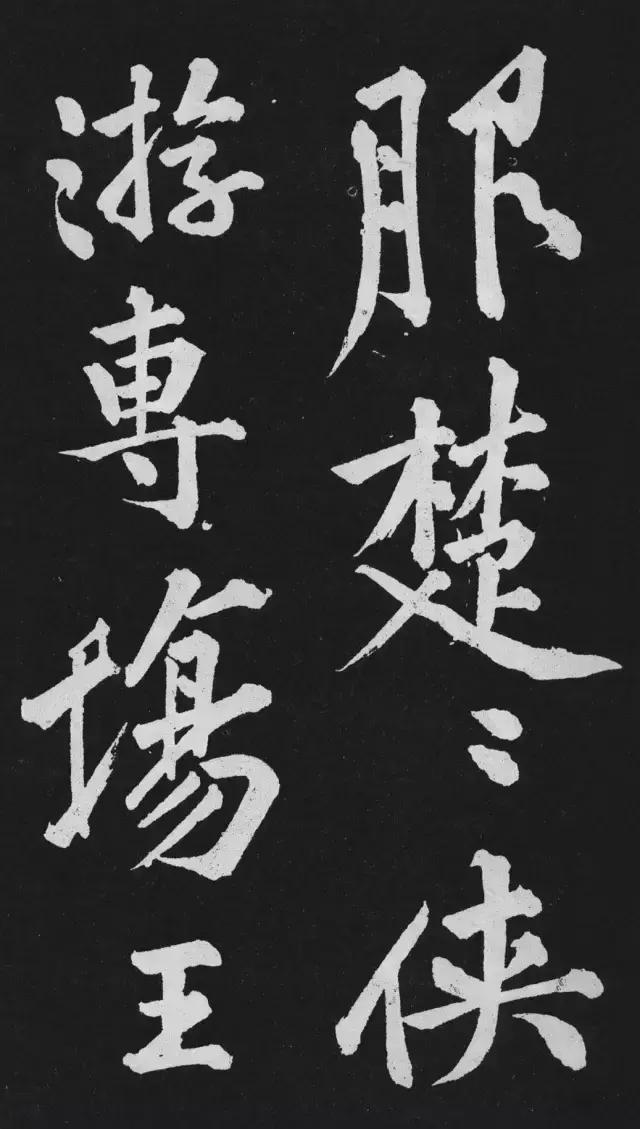 服楚〻侠
游専場王